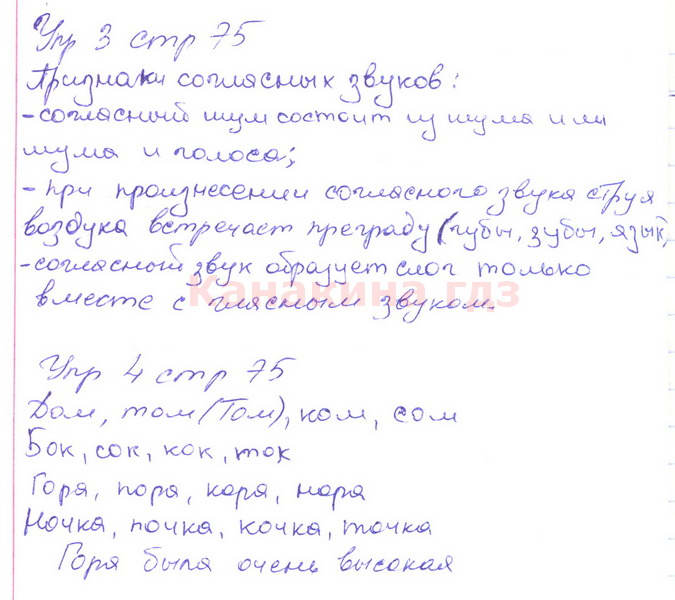 Упр 3 стр 75
Признаки согласных звуков:
- согласный шум состоит из шума или
шума и голоса;
- при произнесении согласного звука струя
воздуха встречает преграду (губы, зубы, язык,
- согласный звук образует слог только
вместе с гласным звуком.
Канакина.гдз
Упр 4 стр 75
Дом, том (Том), ком, сом
Бок, сок, кок, ток
Гора, пора, кора, нора
Ночка, почка, кочка, точка
Гора была очень высокая